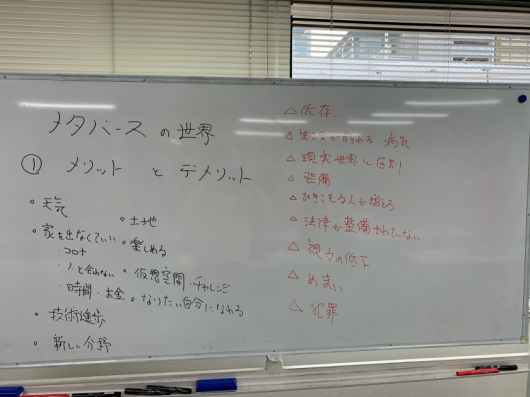 メタバースの世界
① メリット と デメリット
○ 天気
○ 土地
○ 家を出なくていい
○ 楽しめる
・コロナ
・人と会わない
○ 仮想空間・チャレンジ
・時間・お金
○ なりたい自分になれる
○ 技術進歩
○ 新しい分野
△ 依存.
△ 病気
△ 現実世界と区別
△ 装備
△ ひきこもる人が増える
△ 法律が整備されていない
△ 視力の低下
△ めまい
△ 犯罪